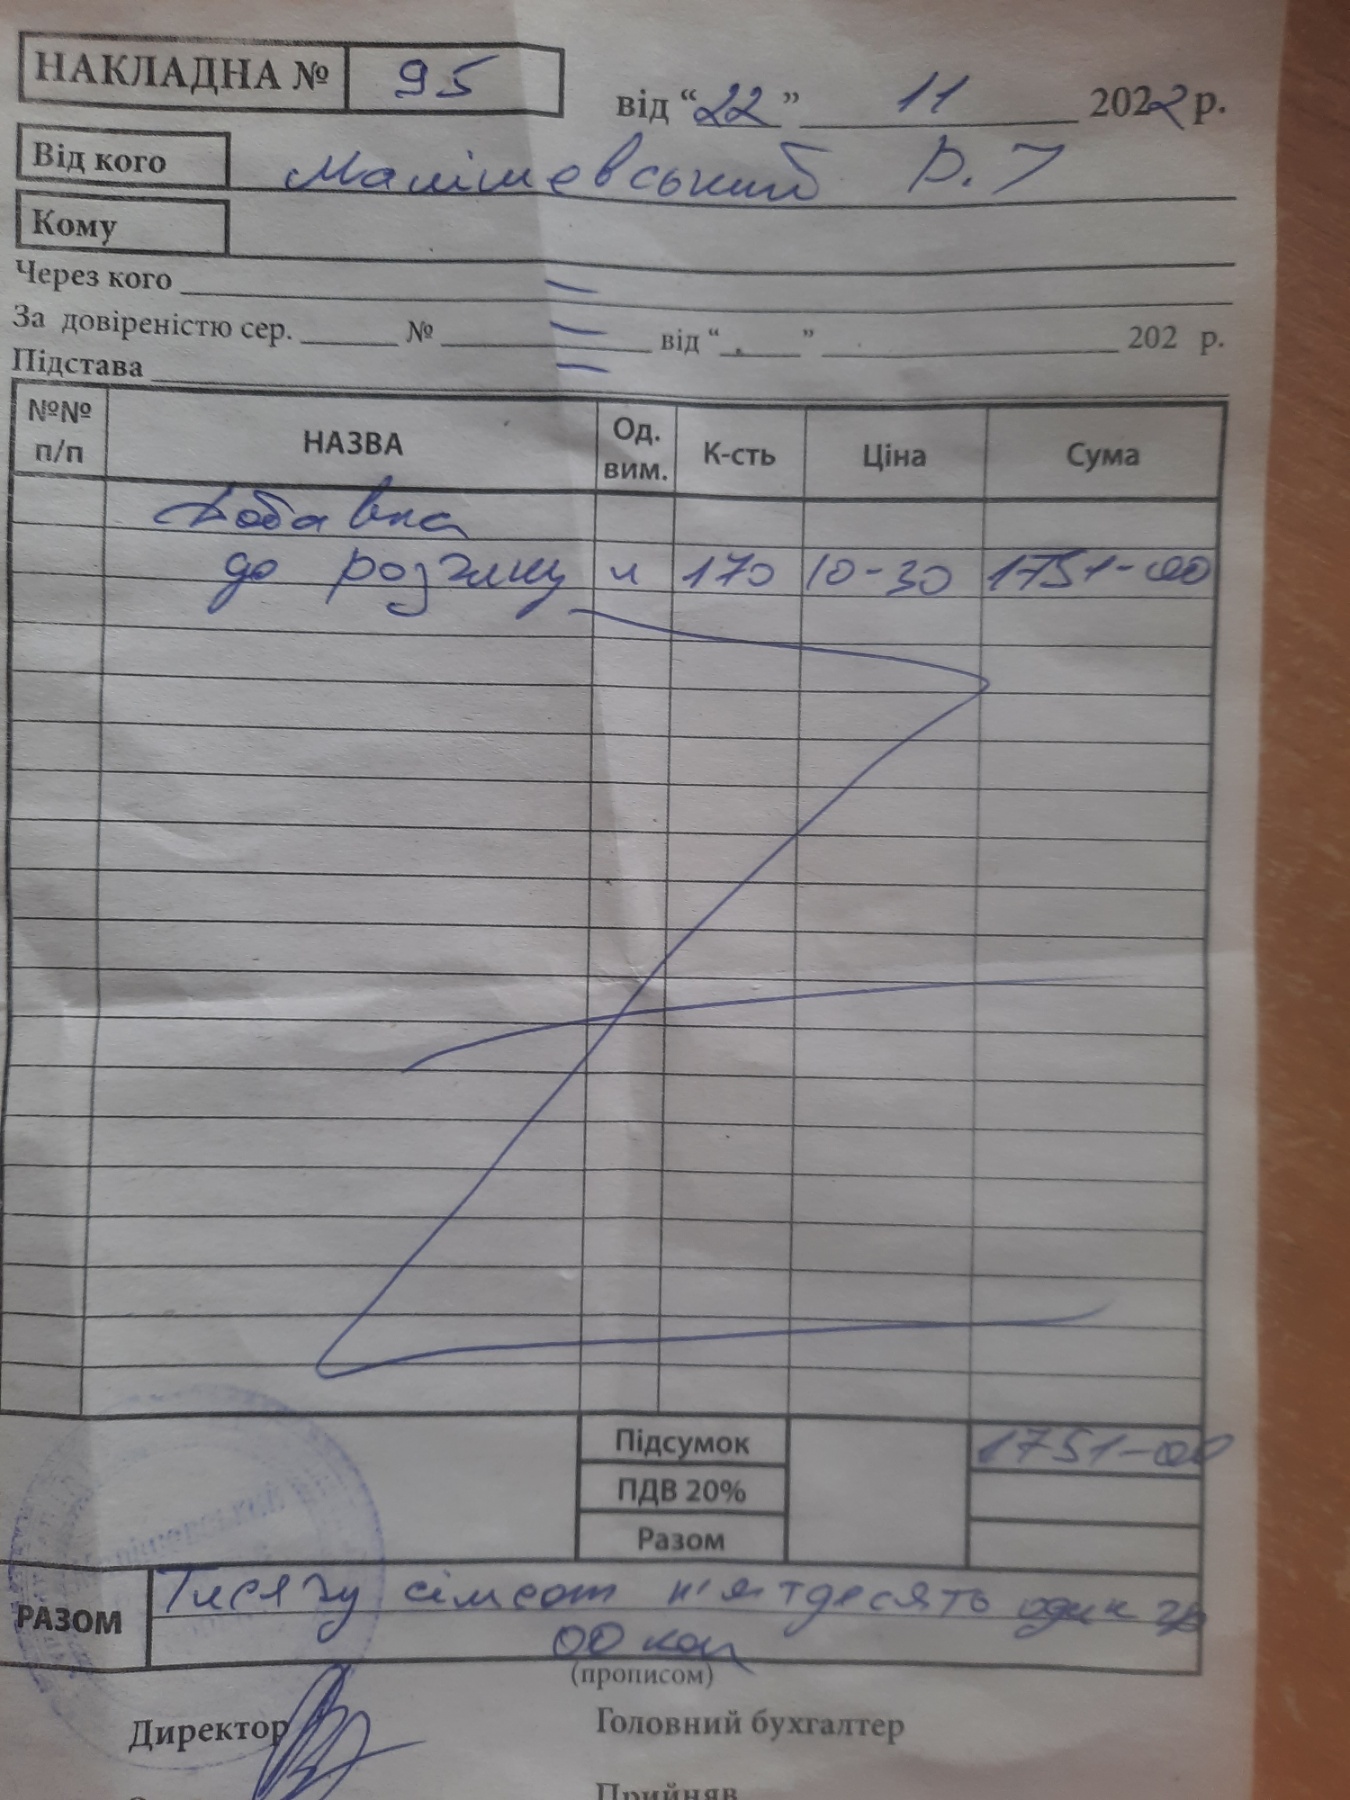 НАКЛАДНА № 95 від “22” 11 2022 р.
Від кого Малішевський Р. Т
Кому
Через кого —
За довіреністю сер. № — від “ ” 202 р.
Підстава —
№№ п/п НАЗВА Од. вим. К-сть Ціна Сума
Добавка
до розчину л 170 10-30 1751-00
Підсумок 1751-00
ПДВ 20%
Разом
РАЗОМ Тисячу сімсот п'ятдесять один гр
00 коп
(прописом)
Директор Головний бухгалтер
Прийняв